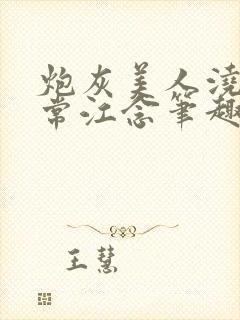 炮灰美人浇
常江念笔趣
王慧